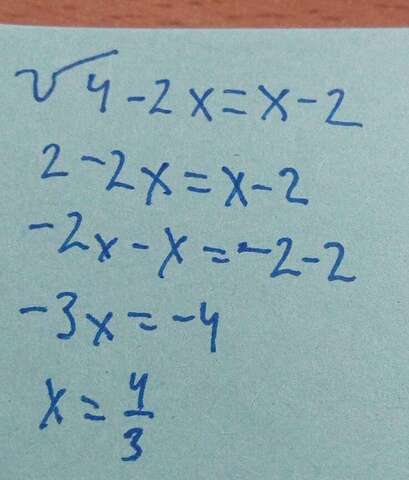 √4-2x=x-2
2-2x=x-2
-2x-x=-2-2
-3x=-4
x=4/3